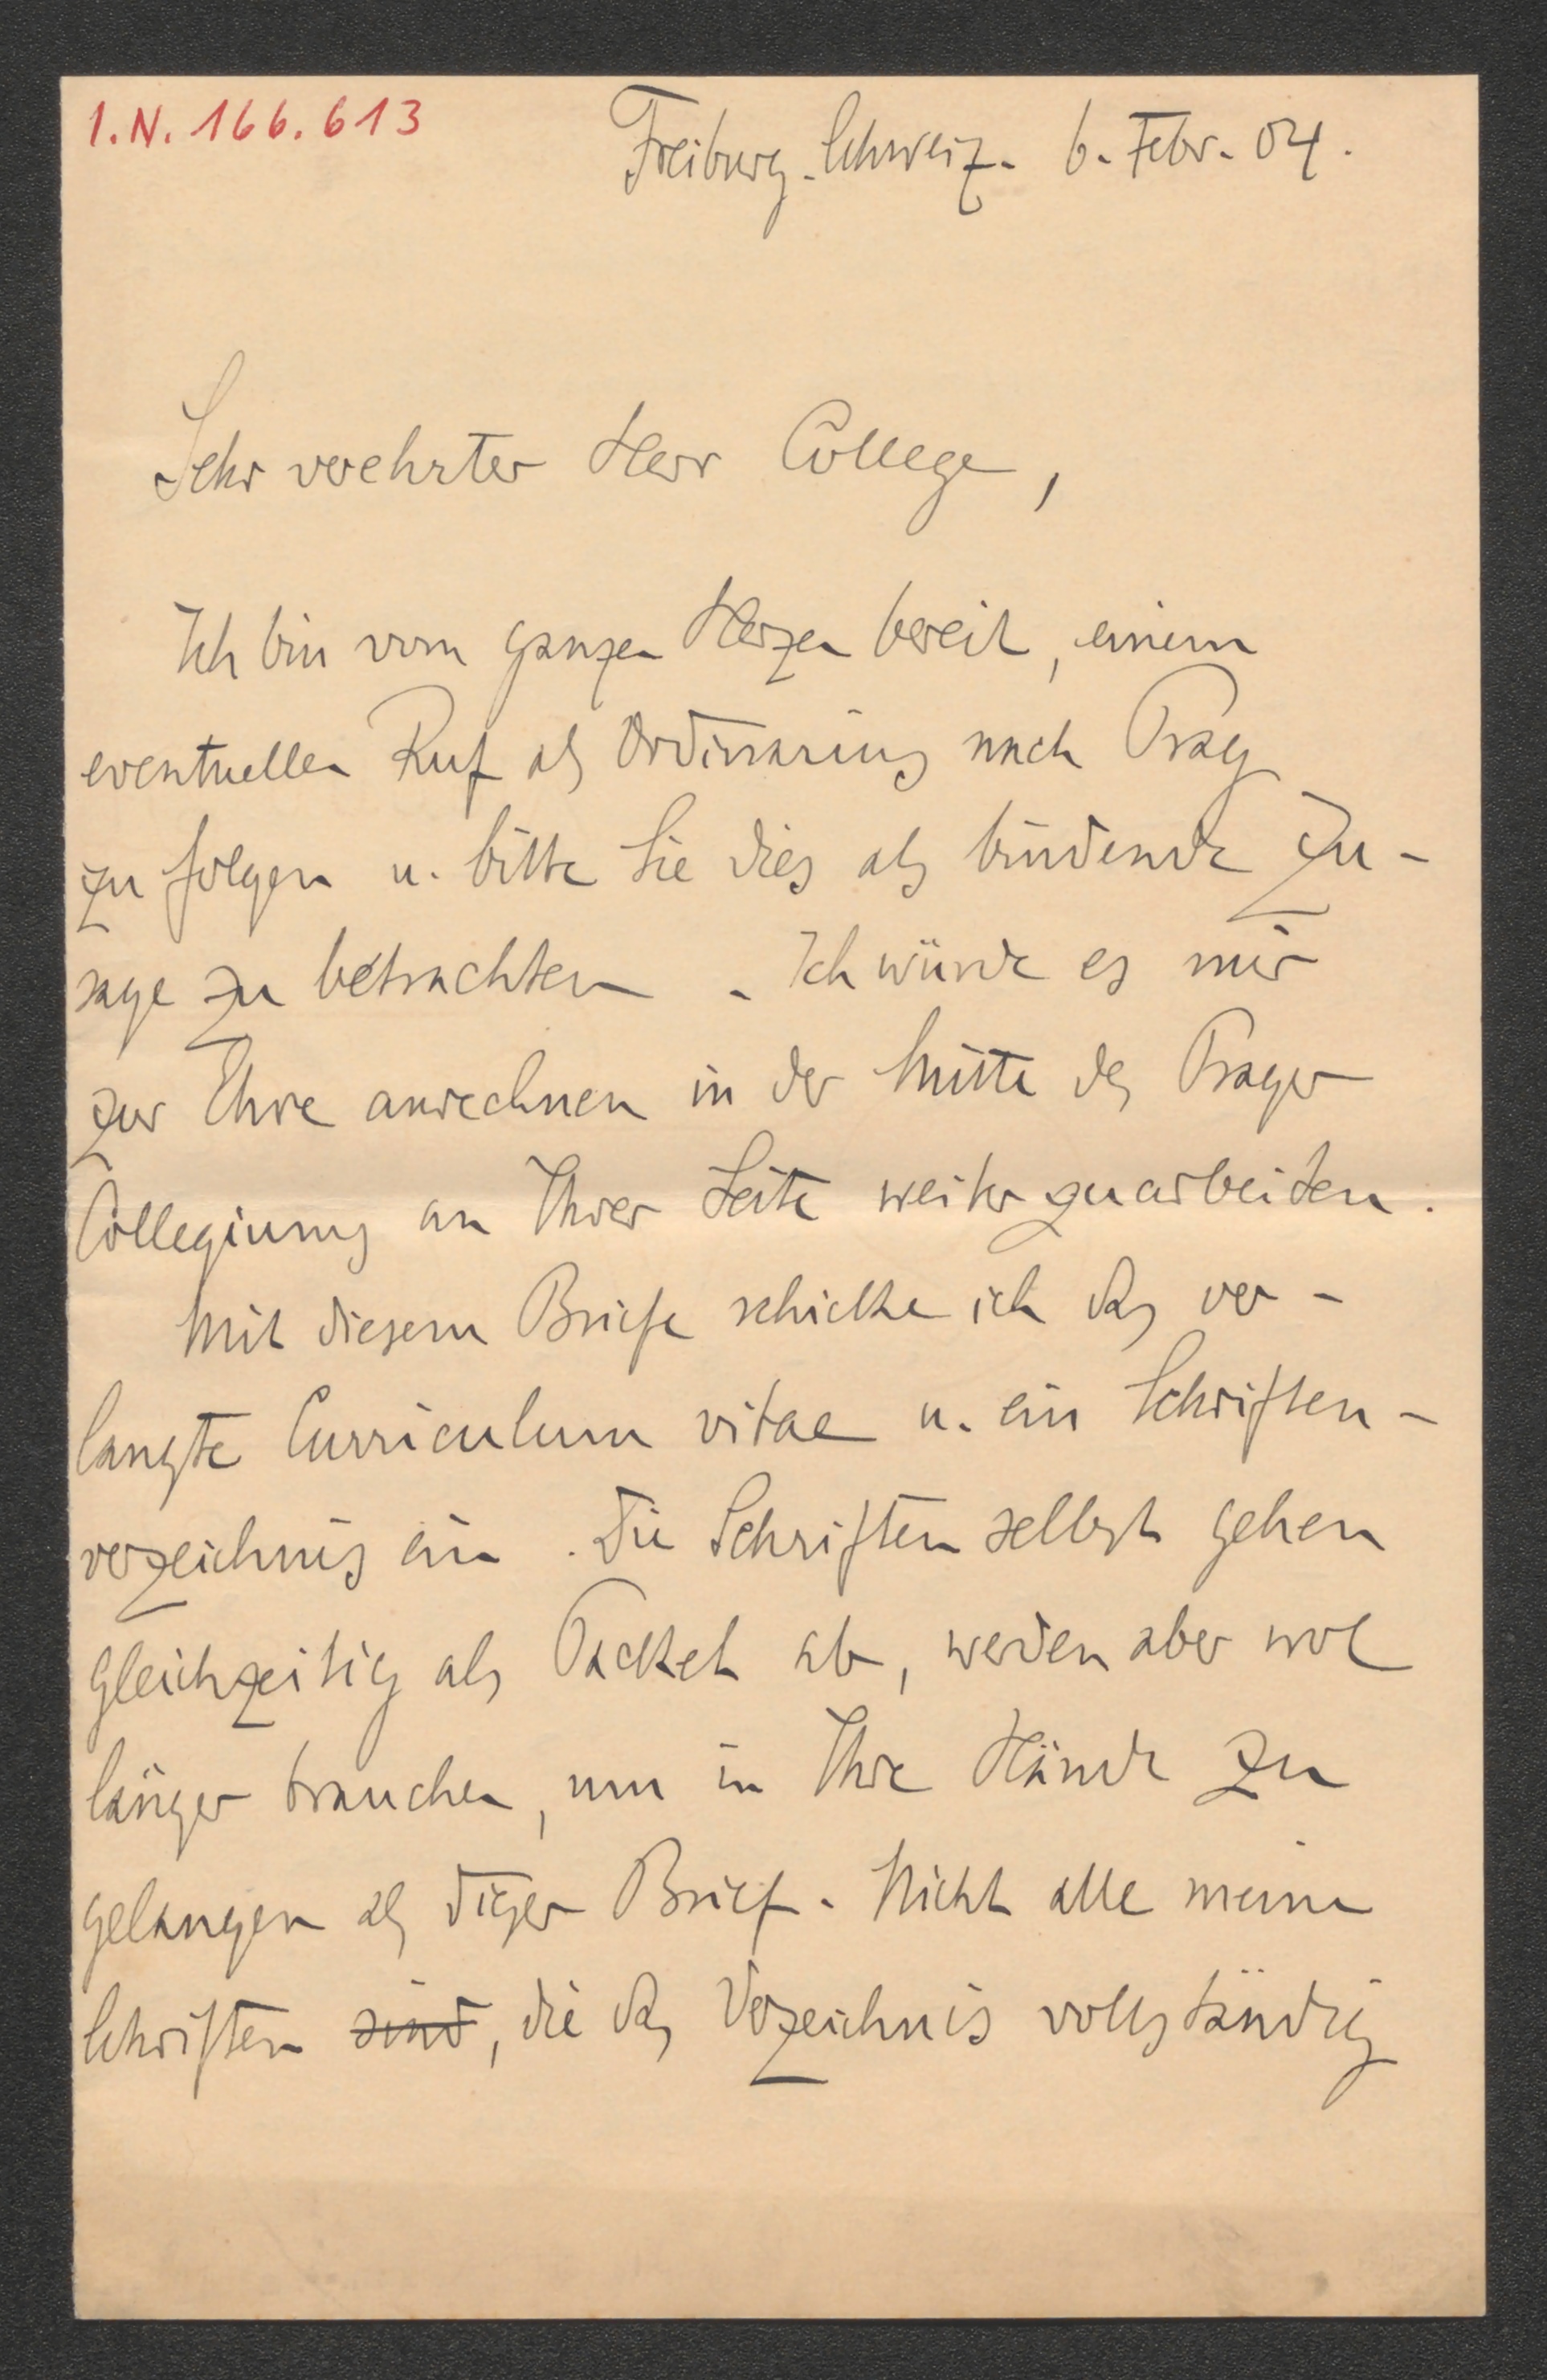 I.N. 166.613
Freiburg-Schweiz. 6. Febr. 04.
Sehr verehrter Herr College,
Ich bin vom ganzen Herzen bereit, einem
eventuellen Ruf als Ordinarius nach Prag
zu folgen u. bitte Sie dies als bindende Zu-
sage zu betrachten. Ich würde es mir
zur Ehre anrechnen in der Mitte des Prager
Collegiums an Ihrer Seite weiterzuarbeiten.
Mit diesem Briefe schicke ich das ver-
langte Curriculum vitae u. ein Schriften-
verzeichnis ein. Die Schriften selbst gehen
gleichzeitig als Packet ab, werden aber wol
länger brauchen, um in Ihre Hände zu
gelangen als dieser Brief. Nicht alle meine
Schriften sind, die das Verzeichnis vollständig